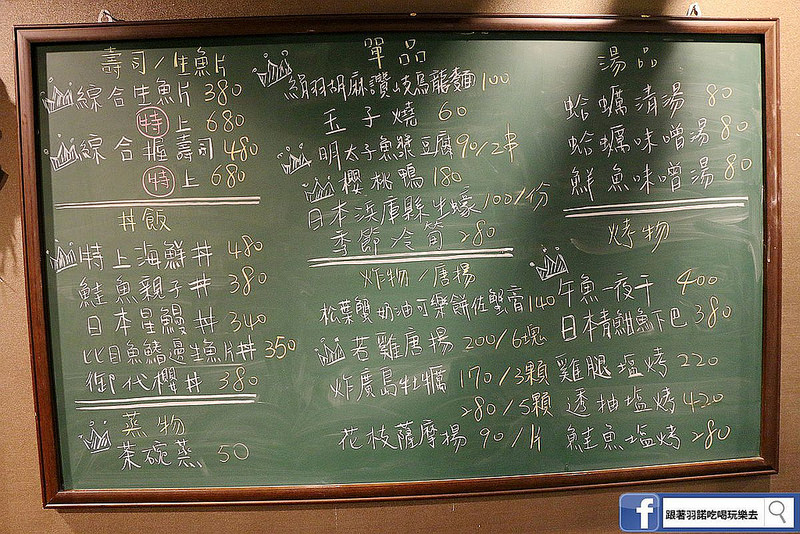 壽司/生魚片
綜合生魚片 380
特上 680
綜合握壽司 480
特上 680
丼飯
特上海鮮丼 480
鮭魚親子丼 380
日本星鰻丼 340
比目魚鰭邊生魚片丼 350
御代櫻丼 380
蒸物
茶碗蒸 50
單品
絹羽胡麻讚岐烏龍麵 100
玉子燒 60
明太子魚漿豆腐 90/2串
櫻桃鴨 180
日本浜庫縣生蠔 100/份
季節冷筍 280
炸物/唐揚
松葉蟹奶油可樂餅佐蟹膏 140
若雞唐揚 200/6塊
炸廣島牡蠣 170/3顆
280/5顆
花枝薩摩揚 90/片
湯品
蛤蠣清湯 80
蛤蠣味噌湯 80
鮮魚味噌湯 80
烤物
午魚一夜干 400
日本青魽魚下巴 380
雞腿塩烤 220
透抽塩烤 420
鮭魚塩烤 280
跟著羽諾吃喝玩樂去